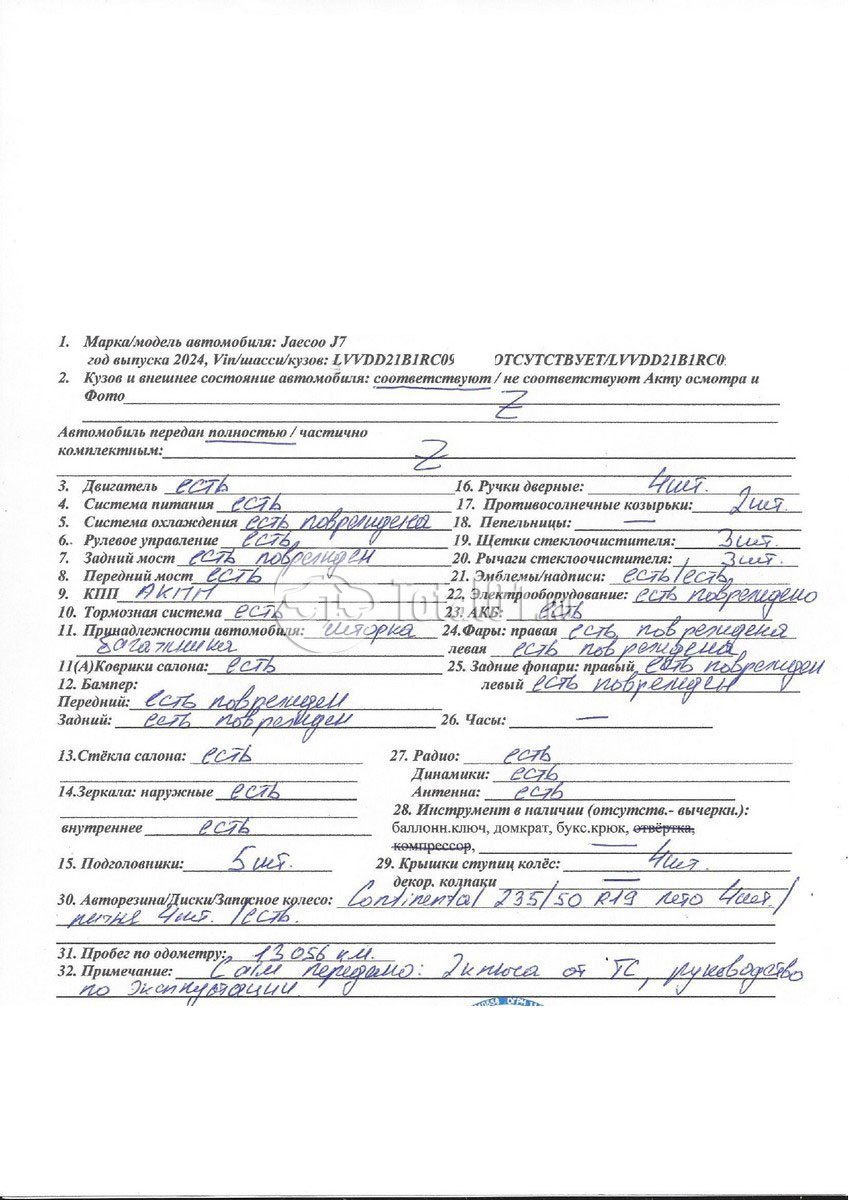 1. Марка/модель автомобиля: Jaecoo J7
год выпуска 2024, Vin/шасси/кузов: LVVDD21B1RC09 ОТСУТСТВУЕТ/LVVDD21B1RC0
2. Кузов и внешнее состояние автомобиля: соответствуют / не соответствуют Акту осмотра и
Фото Z
Автомобиль передан полностью / частично
комплектным: Z
3. Двигатель есть
16. Ручки дверные: 4шт.
4. Система питания есть
17. Противосолнечные козырьки: 2шт.
5. Система охлаждения есть повреждена
18. Пепельницы: —
6. Рулевое управление есть
19. Щетки стеклоочистителя: 3шт.
7. Задний мост есть поврежден
20. Рычаги стеклоочистителя: 3шт.
8. Передний мост есть
21. Эмблемы/надписи: есть/есть
9. КПП АКПП
22. Электрооборудование: есть повреждено
10. Тормозная система есть
23. АКБ: есть
11. Принадлежности автомобиля: шторка
24.Фары: правая есть повреждена
багажника
левая есть повреждена
11(А)Коврики салона: есть
25. Задние фонари: правый есть поврежден
12. Бампер:
левый есть поврежден
Передний: есть поврежден
Задний: есть поврежден
26. Часы: —
13.Стёкла салона: есть
27. Радио: есть
Динамики: есть
14.Зеркала: наружные есть
Антенна: есть
28. Инструмент в наличии (отсутств.- вычеркн.):
внутреннее есть
баллонн.ключ, домкрат, букс.крюк, отвёртка,
компрессор, —
15. Подголовники: 5шт.
29. Крышки ступиц колёс: 4шт.
декор. колпаки —
30. Авторезина/Диски/Запасное колесо: Continental 235/50 R19 лето 4шт/
литые 4шт. /есть.
31. Пробег по одометру: 13056 км.
32. Примечание: передано: 2ключа от ТС, руководство
по эксплуатации.
ОГРН